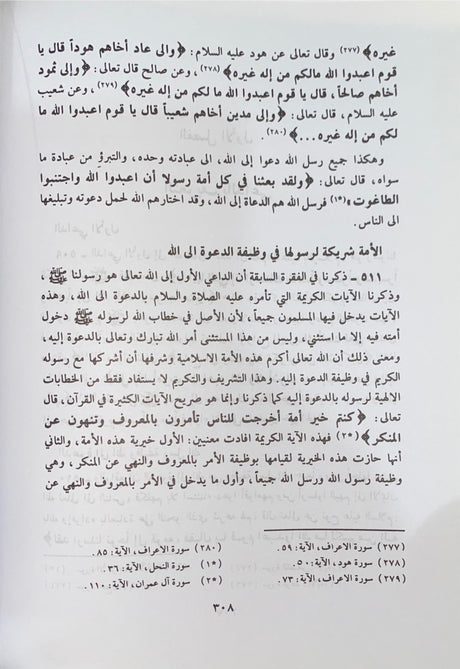 غيره﴾ (٢٧٧) وقال تعالى عن هود عليه السلام: ﴿والى عاد أخاهم هوداً قال يا
قوم اعبدوا الله مالكم من إله غيره﴾ (٢٧٨)، وعن صالح قال تعالى: ﴿وإلى ثمود
أخاهم صالحاً، قال يا قوم اعبدوا الله ما لكم من إله غيره﴾ (٢٧٩)، وعن شعيب
عليه السلام، قال تعالى: ﴿وإلى مدين أخاهم شعيباً قال يا قوم اعبدوا الله ما
لكم من إله غيره...﴾ (٢٨٠).
وهكذا جميع رسل الله دعوا إلى الله، الى عبادته وحده، والتبرؤ من عبادة ما
سواه، قال تعالى: ﴿ولقد بعثنا في كل أمة رسولا أن اعبدوا الله واجتنبوا
الطاغوت﴾ (١*) فرسل الله هم الدعاة إلى الله، وقد اختارهم الله لحمل دعوته وتبليغها
الى الناس.
الأمة شريكة لرسولها في وظيفة الدعوة الى الله
٥١١ ـ ذكرنا في الفقرة السابقة أن الداعي الأول إلى الله تعالى هو رسولنا ﷺ،
وذكرنا الآيات الكريمة التي تأمره عليه الصلاة والسلام بالدعوة الى الله، وهذه
الآيات يدخل فيها المسلمون جميعاً، لأن الأصل في خطاب الله لرسوله ﷺ دخول
أمته فيه إلا ما استثني، وليس من هذا المستثنى أمر الله تبارك وتعالى بالدعوة إليه،
ومعنى ذلك أن الله تعالى أكرم هذه الأمة الاسلامية وشرفها أن أشركها مع رسوله
الكريم في وظيفة الدعوة إليه. وهذا التشريف والتكريم لا يستفاد فقط من الخطابات
الالهية لرسوله بالدعوة إليه كما ذكرنا وإنما هو صريح الآيات الكثيرة في القرآن، قال
تعالى: ﴿كنتم خير أمة أخرجت للناس تأمرون بالمعروف وتنهون عن
المنكر﴾ (٢*) فهذه الآية الكريمة افادت معنيين: الأول خيرية هذه الأمة، والثاني
أنها حازت هذه الخيرية لقيامها بوظيفة الأمر بالمعروف والنهي عن المنكر، وهي
وظيفة رسول الله ورسل الله جميعاً، وأول ما يدخل في الأمر بالمعروف والنهي عن
(٢٧٧) سورة الاعراف، الآية: ٥٩.
(٢٧٨) سورة هود، الآية: ٥٠.
(٢٧٩) سورة الاعراف، الآية: ٧٣.
(٢٨٠) سورة الاعراف، الآية: ٨٥.
(١*) سورة النحل، الآية: ٣٦.
(٢*) سورة آل عمران، الآية: ١١٠.
٣٠٨